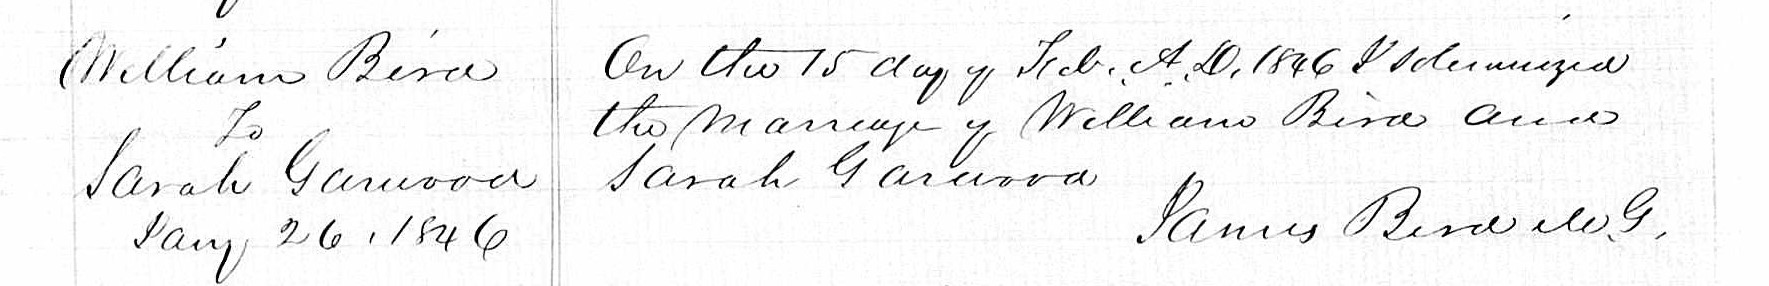 William Bird
To
Sarah Garwood
Jany 26, 1846
On the 15 day of Feb. A.D. 1846 I Solemnized
the Marriage of William Bird and
Sarah Garwood
James Bird M.G.